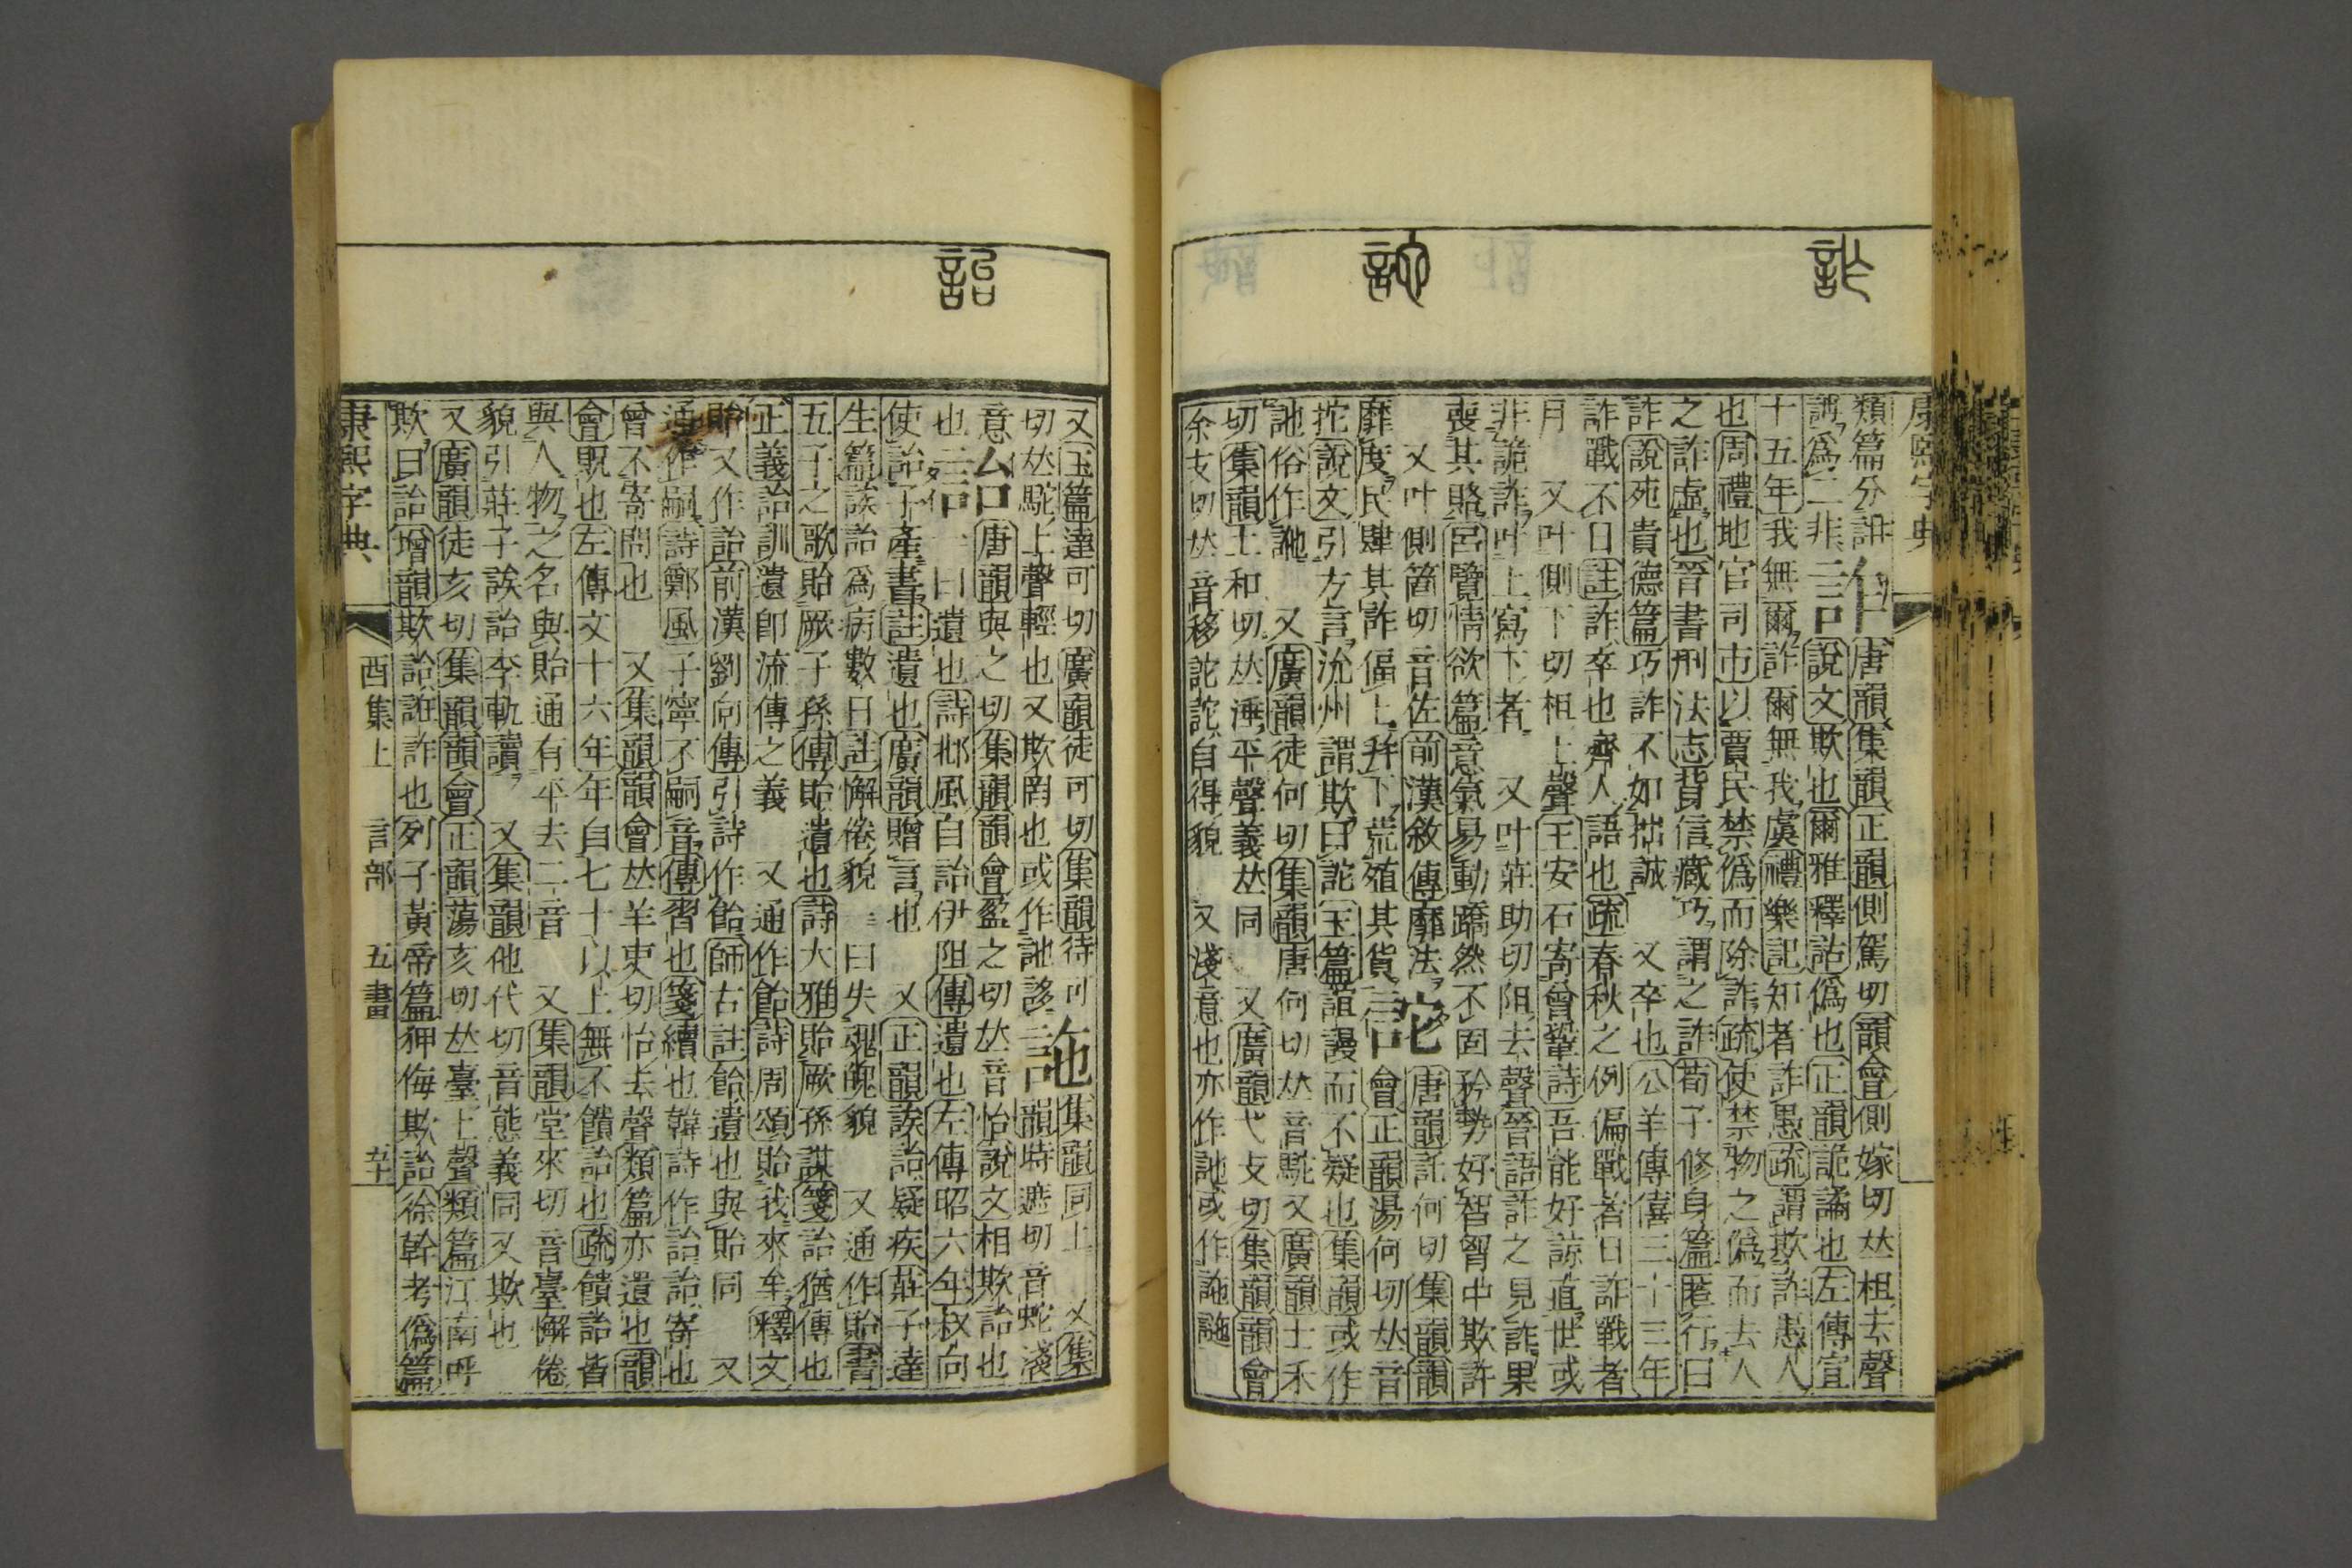 詐
詑
康熙字典
類篇分誰詐唐韻集韻正韻側駕切韻會側嫁切𠀤柤去聲
說文欺也爾雅釋詁僞也正韻詭譎也左傳宣
十五年我無爾詐爾無我虞禮樂記知者詐愚疏謂欺詐愚人
也周禮地官司市以賈民禁僞而除詐疏使禁物之僞而去人
之詐虛也晉書刑法志背信藏巧謂之詐荀子修身篇匿行曰
詐說苑貴德篇巧詐不如拙誠 又卒也公羊傳僖三十三年
詐戰不日註詐卒也齊人語也疏春秋之例偏戰者日詐戰者
月 又叶側下切柤上聲王安石寄曾鞏詩吾能好諒直世或
非詭詐叶上寫下者 又叶莊助切阻去聲晉語詐之見詐果
喪其賂呂覽情欲篇意氣易動蹻然不固矜勢好智胷中欺詐
又叶側箇切音佐前漢敘傳靡法
靡度民肆其詐偪上幷下荒殖其貨詑唐韻託何切集韻韻
會正韻湯何切𠀤音
拕說文引方言沇州謂欺曰詑玉篇謾而不疑也集韻或作
訑俗作𧦧 又廣韻徒何切集韻唐何切𠀤音駝又廣韻土禾
切集韻土和切𠀤涶平聲義𠀤同 又廣韻弋支切集韻韻會
余支切𠀤音移詑詑自得貌 又淺意也亦作訑或作
詒
又玉篇達可切廣韻徒可切集韻待可切𠀤駝上聲輕也又欺罔也或作訑𧦧集韻同上 又集
韻時遮切音蛇淺
意詒唐韻與之切集韻韻會盈之切𠀤音怡說文相欺詒也
一曰遺也詩邶風自詒伊阻傳遺也左傳昭六年叔向
使詒子產書註遺也廣韻贈言也 又正韻誒詒疑疾莊子達
生篇誒詒爲病數日註懈倦貌一曰失魂魄貌 又通作貽書
五子之歌貽厥子孫傳貽遺也詩大雅貽厥孫謀箋詒猶傳也
正義詒訓遺卽流傳之義 又通作飴詩周頌貽我來牟釋文
貽又作詒前漢劉向傳引詩作飴師古註飴遺也與貽同 又
通作嗣詩鄭風子寧不嗣音傳習也箋續也韓詩作詒詒寄也
曾不寄問也 又集韻韻會𠀤羊吏切怡去聲類篇亦遺也韻
會貺也左傳文十六年年自七十以上無不饋詒也疏饋詒皆
與人物之名與貽通有平去二音 又集韻堂來切音臺懈倦
貌引莊子誒詒李軌讀 又集韻他代切音態義同又欺也
又廣韻徒亥切集韻韻會正韻蕩亥切𠀤臺上聲類篇江南呼
欺曰詒增韻欺詒誑詐也列子黃帝篇狎侮欺詒徐幹考僞篇
康熙字典 酉集上 言部 五畫